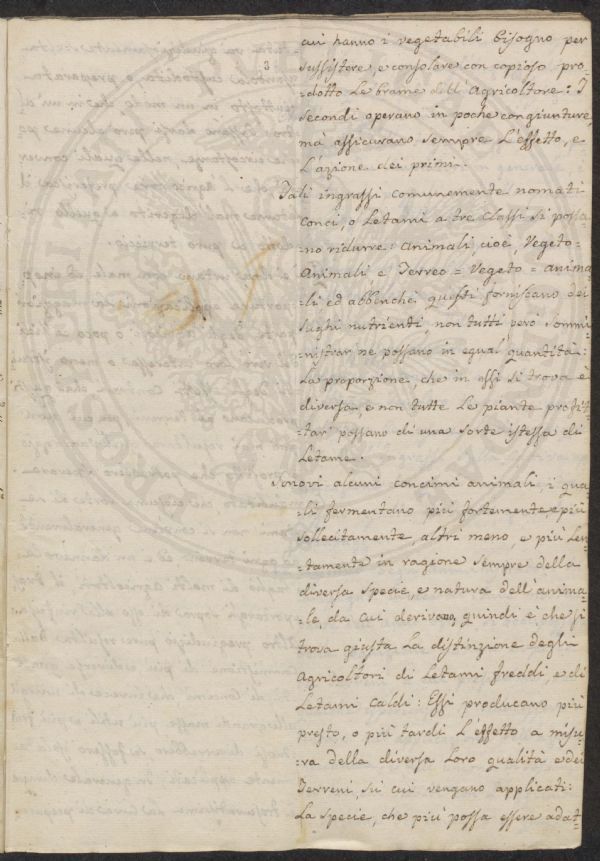 3
cui hanno i vegetabili bisogno per
sussistere, e consolare con copioso pro-
=dotto Le brame dell'Agricoltore: I
secondi operano in poche congiunture,
mà assicurano sempre L'effetto, e
L'azione dei primi.
Tali ingrassi comunemente nomati
Conci, o Letami a tre classi si possa-
=no ridurre: Animali, cioè, Vegeto=
Animali e Terreo = Vegeto = anima-
=li ed abbenchè questi forniscano dei
sughi nutrienti, non tutti però sommi-
=nistrar ne possano in egual quantità:
La proporzione, che in essi si trova è
diversa, e non tutte Le piante profit-
=tar possano di una sorte istessa di
Letame.
Sonovi alcuni concimi animali i qua-
=li fermentano più fortemente, e più
sollecitamente altri meno, e più Len-
=tamente in ragione sempre della
diversa specie, e natura dell'anima-
=le, da cui derivano, quindi è che si
trova giusta La distinzione degli
Agricoltori di Letami freddi e di
Letami caldi: Essi producano più
presto, o più tardi L'effetto a misu-
=ra della diversa Loro qualità e dei
Terreni su cui vengano applicati:
La specie, che più possa essere adat-